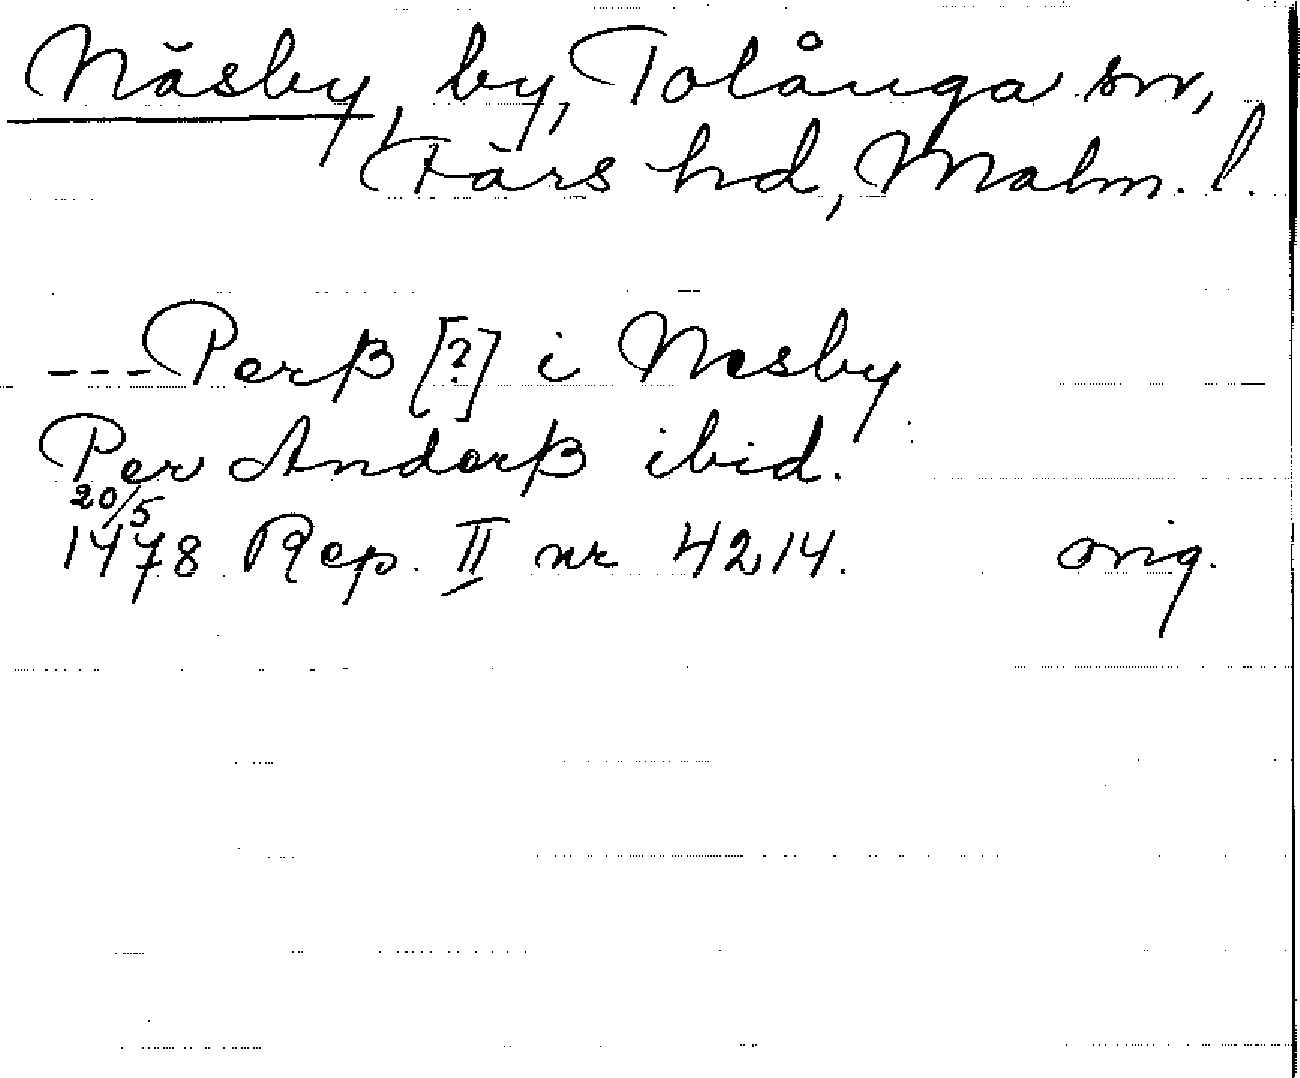 Näsby, by, Tolånga sn,
Färs hd, Malm. l.
---Perß [?] i Nesby
Per Anderß ibid.
20/5
1478 Rep. II nr 4214. orig.